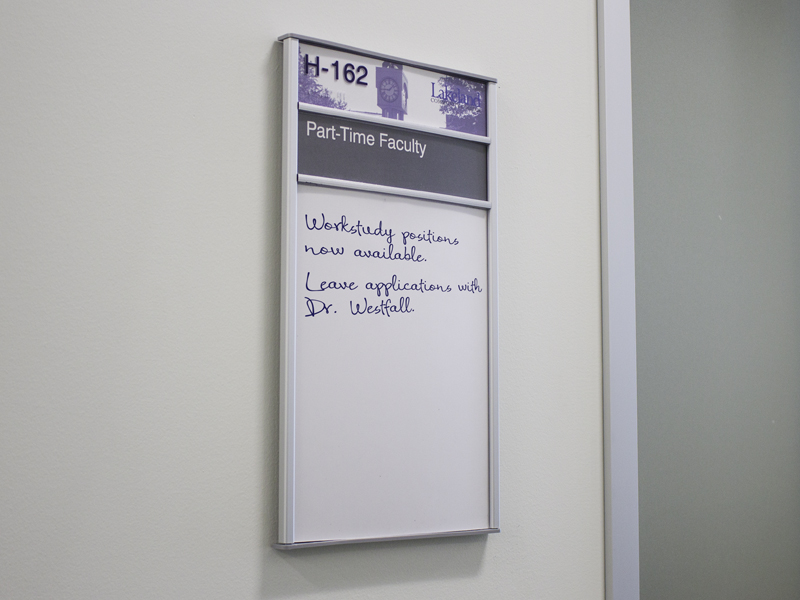 H-162
Lakeland
Part-Time Faculty
Workstudy positions
now available.
Leave applications with
Dr. Westfall.